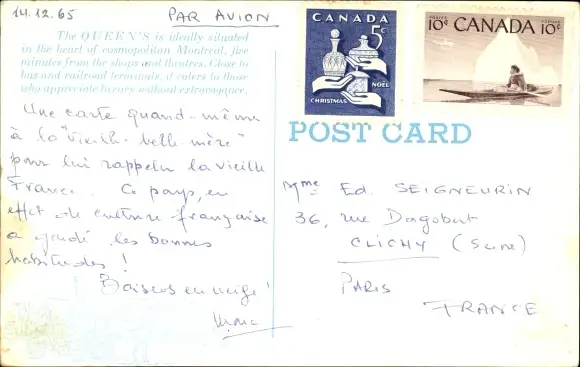 14.12.65
PAR AVION
The QUEEN'S is ideally situated
in the heart of cosmopolitan Montreal, five
minutes from the shops and theatres. Close to
bus and railroad terminals, it caters to those
who appreciate luxury without extravagance.
Une carte quand-même
à la "Vieille-belle-mère"
pour lui rappeler la vieille
France. Ce pays, en
effet de culture française
a gardé les bonnes
habitudes !
Baisers en neige !
CANADA
5¢
NOËL
CHRISTMAS
POSTES POSTAGE
10¢ CANADA 10¢
POST CARD
Mme Ed. SEIGNEURIN
36, rue Dagobert
CLICHY (Seine)
PARIS
FRANCE